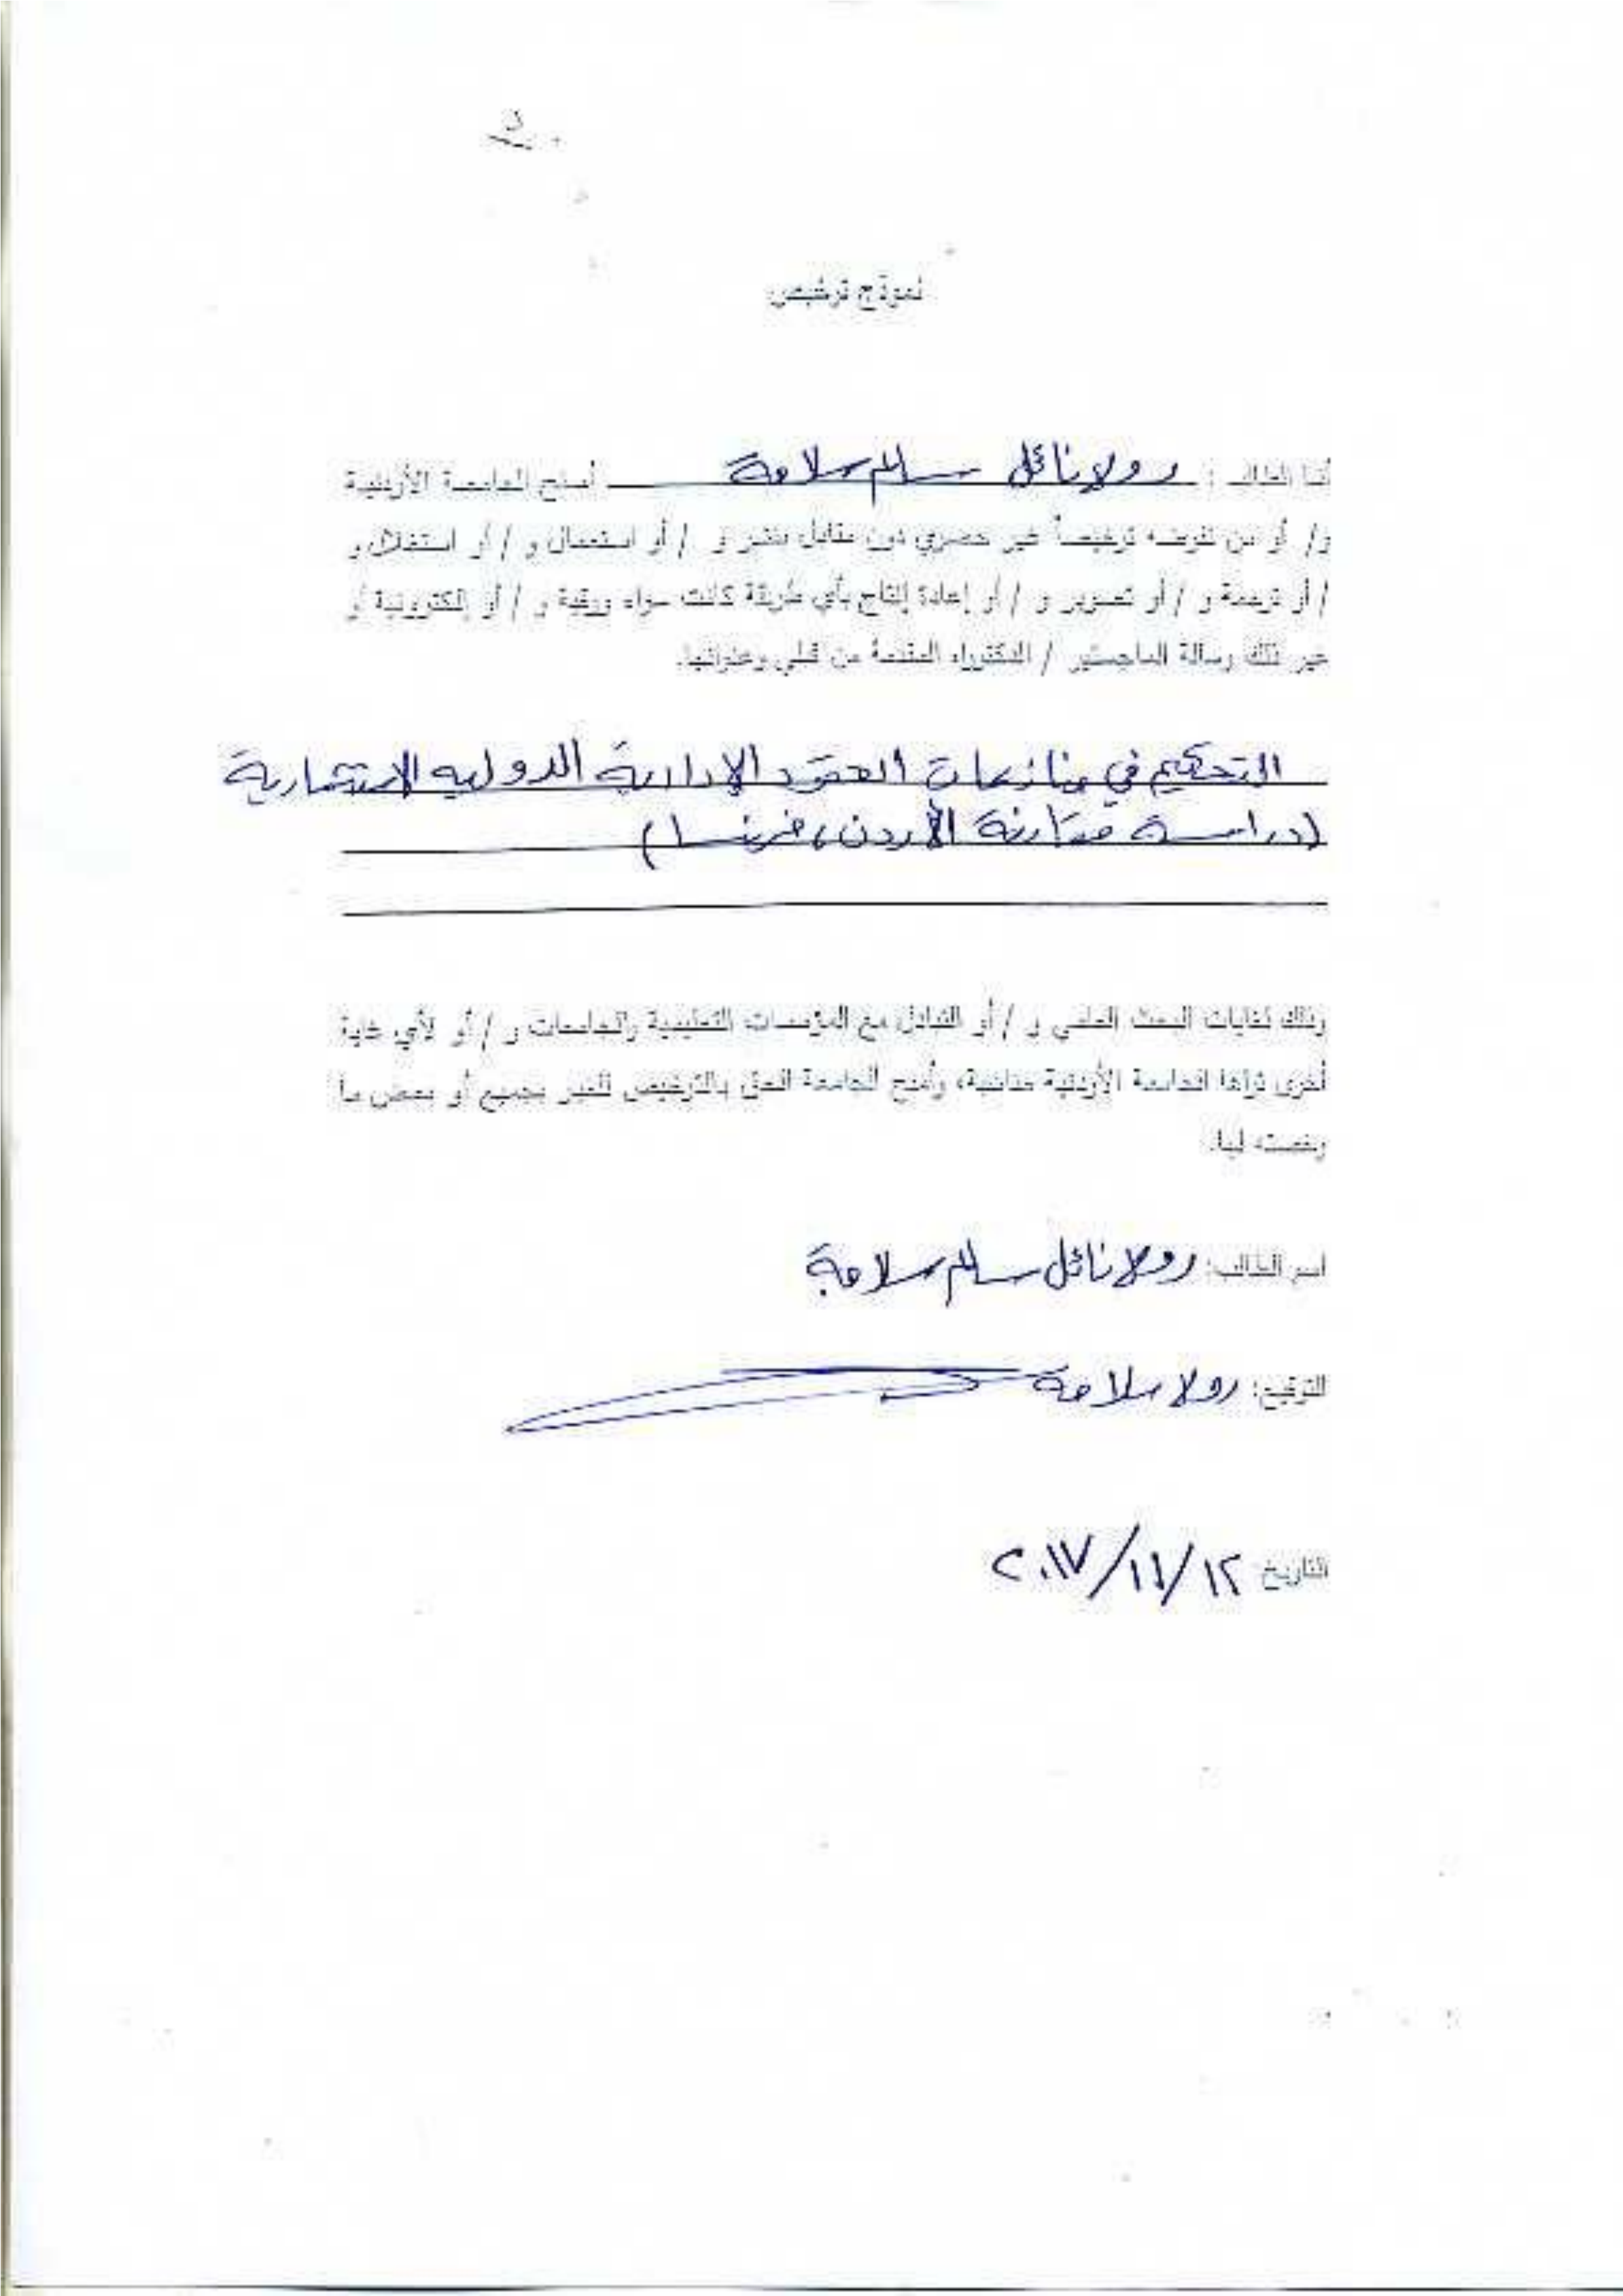 نموذج ترخيص
أنا الطالب : رولا نائل سالم سلامة أمنح الجامعة الأردنية
و/ أو من تفوضه ترخيصاً غير حصري دون مقابل بنشر و / أو استعمال و / أو استغلال و
/ أو ترجمة و / أو تصوير و / أو إعادة إنتاج بأي طريقة كانت سواء ورقية و / أو إلكترونية أو
غير ذلك رسالة الماجستير / الدكتوراه المقدمة من قبلي وعنوانها.
التحكيم في منازعات العقود الإدارية الدوليه الاستثمارية
(دراسة مقارنة الأردن، فرنسا)
وذلك لغايات البحث العلمي و / أو التبادل مع المؤسسات التعليمية والجامعات و / أو لأي غاية
أخرى تراها الجامعة الأردنية مناسبة، وأمنح الجامعة الحق بالترخيص للغير بجميع أو بعض ما
رخصته لها.
اسم الطالب: رولا نائل سالم سلامة
التوقيع: رولا سلامة
التاريخ: ٢٠١٧/١١/١٢